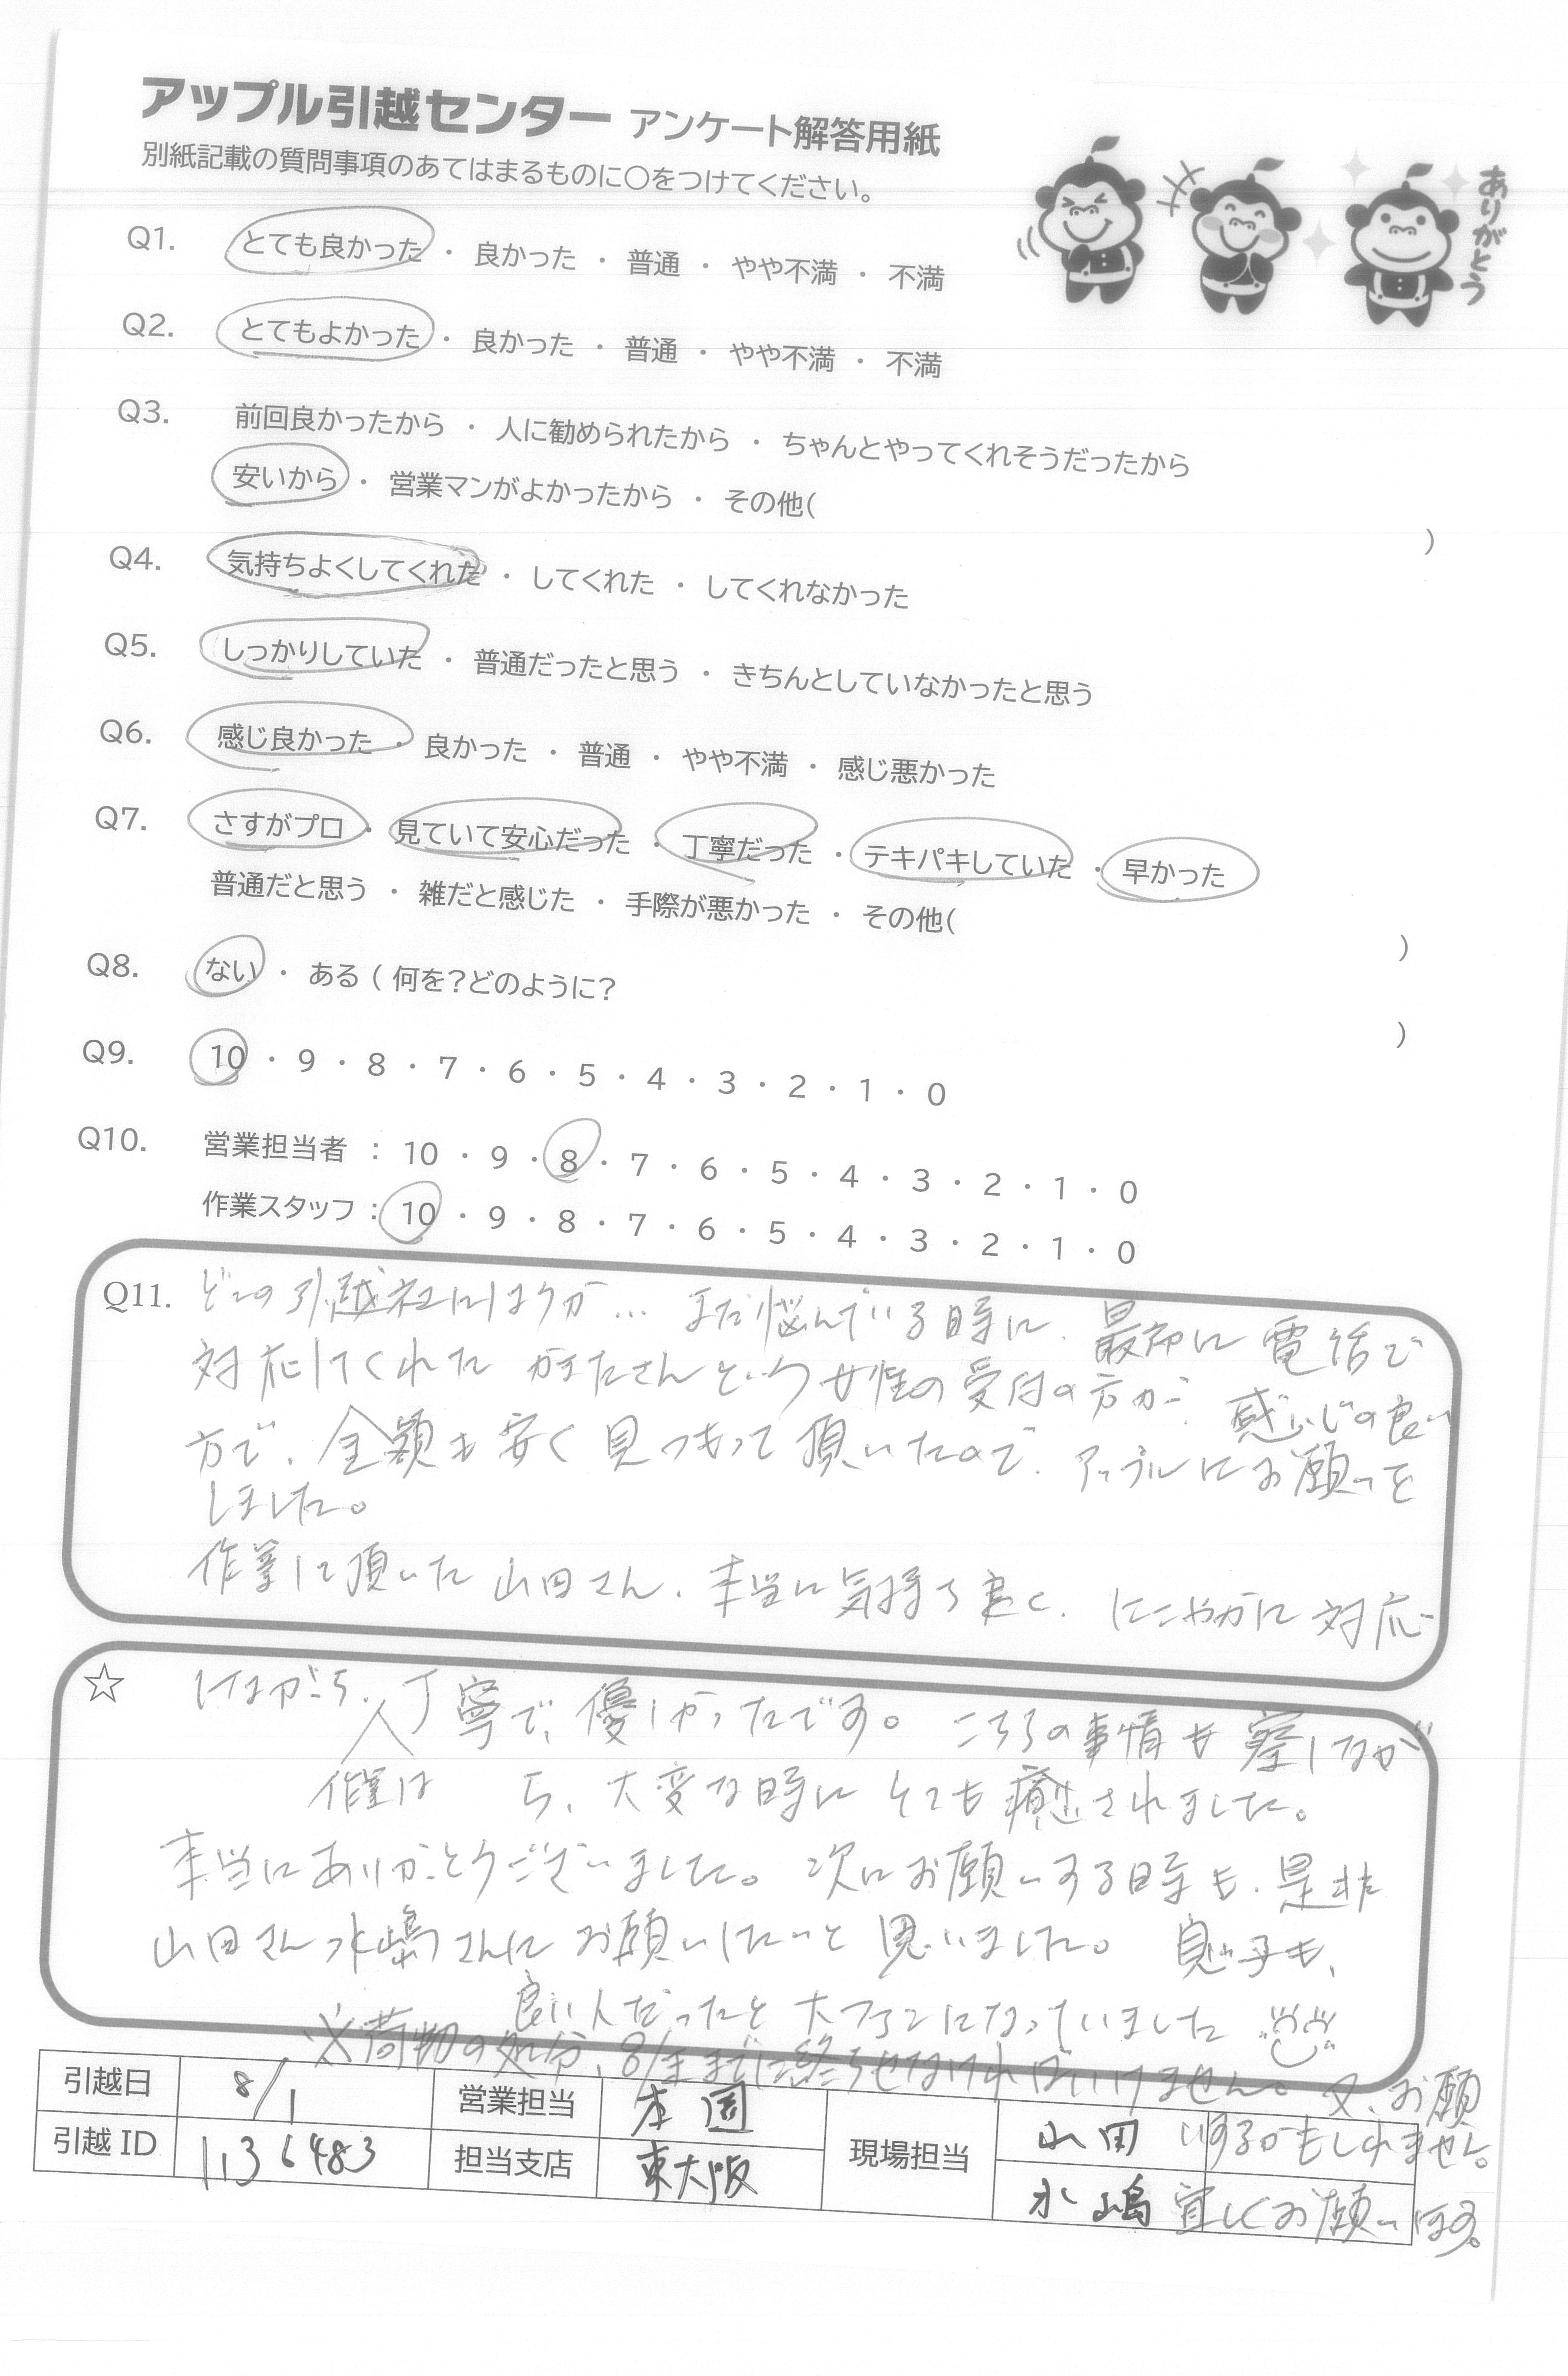 アップル引越センター アンケート解答用紙
別紙記載の質問事項のあてはまるものに〇をつけてください。
ありがとう
Q1. とても良かった ・ 良かった ・ 普通 ・ やや不満 ・ 不満
Q2. とてもよかった ・ 良かった ・ 普通 ・ やや不満 ・ 不満
Q3. 前回良かったから ・ 人に勧められたから ・ ちゃんとやってくれそうだったから
安いから ・ 営業マンがよかったから ・ その他( )
Q4. 気持ちよくしてくれた ・ してくれた ・ してくれなかった
Q5. しっかりしていた ・ 普通だったと思う ・ きちんとしていなかったと思う
Q6. 感じ良かった ・ 良かった ・ 普通 ・ やや不満 ・ 感じ悪かった
Q7. さすがプロ ・ 見ていて安心だった ・ 丁寧だった ・ テキパキしていた ・ 早かった
普通だと思う ・ 雑だと感じた ・ 手際が悪かった ・ その他( )
Q8. ない ・ ある ( 何を?どのように? )
Q9. 10 ・ 9 ・ 8 ・ 7 ・ 6 ・ 5 ・ 4 ・ 3 ・ 2 ・ 1 ・ 0
Q10. 営業担当者 : 10 ・ 9 ・ 8 ・ 7 ・ 6 ・ 5 ・ 4 ・ 3 ・ 2 ・ 1 ・ 0
作業スタッフ : 10 ・ 9 ・ 8 ・ 7 ・ 6 ・ 5 ・ 4 ・ 3 ・ 2 ・ 1 ・ 0
Q11. どこの引越社にしようか… まだ悩んでいる時に、最初に電話で
対応してくれた かまたさんという女性の受付の方が、感じの良い
方で、金額も安く見つもって頂いたので、アップルにお願いを
しました。
作業して頂いた 山田さん、本当に気持ち良く、にこやかに対応
☆ しながら、丁寧で、優しかったです。こちらの事情も察しなが
作業は ら、大変な時に とても癒されました。
本当にありがとうございました。次にお願いする時も、是非
山田さん 水嶋さんに お願いしたいと思いました。息子も、
良い人だったと 大ファンになっていました
※荷物の処分、8/末までに終らせなければいけません。又、お願
いするかもしれません。
宜しくお願いします。
引越日 8/1 営業担当 本園 現場担当 山田
引越ID 1136483 担当支店 東大阪 水嶋